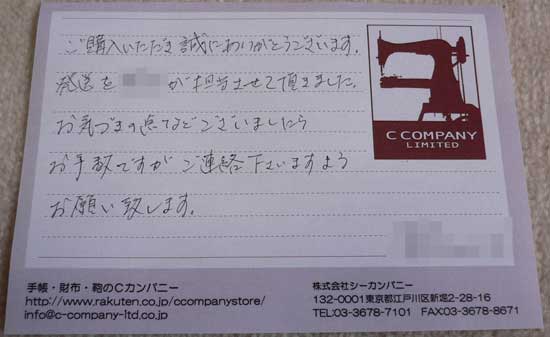 ご購入いただき誠にありがとうございます。
発送を が担当させて頂きました。
お気づきの点などございましたら
お手数ですがご連絡下さいますよう
お願い致します。
C COMPANY
LIMITED
手帳・財布・鞄のCカンパニー
http://www.rakuten.co.jp/ccompanystore/
info@c-company-ltd.co.jp
株式会社シーカンパニー
132-0001東京都江戸川区新堀2-28-16
TEL:03-3678-7101 FAX:03-3678-8671